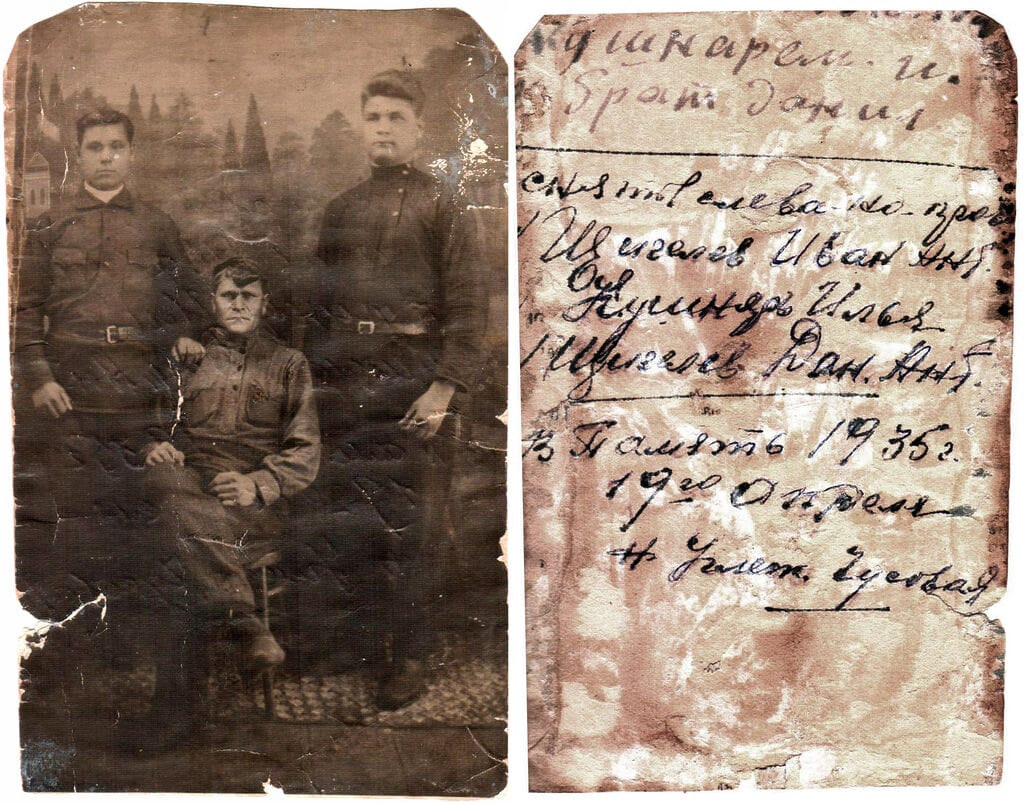 Кушнарем. и.
брат данил
сняты слева-но-прав
Щигелев Иван Ант.
Кушнарь Илья
Щигелев Дан. Ант.
В Память 1935 г.
19го Апреля
Углеж. Чусовая